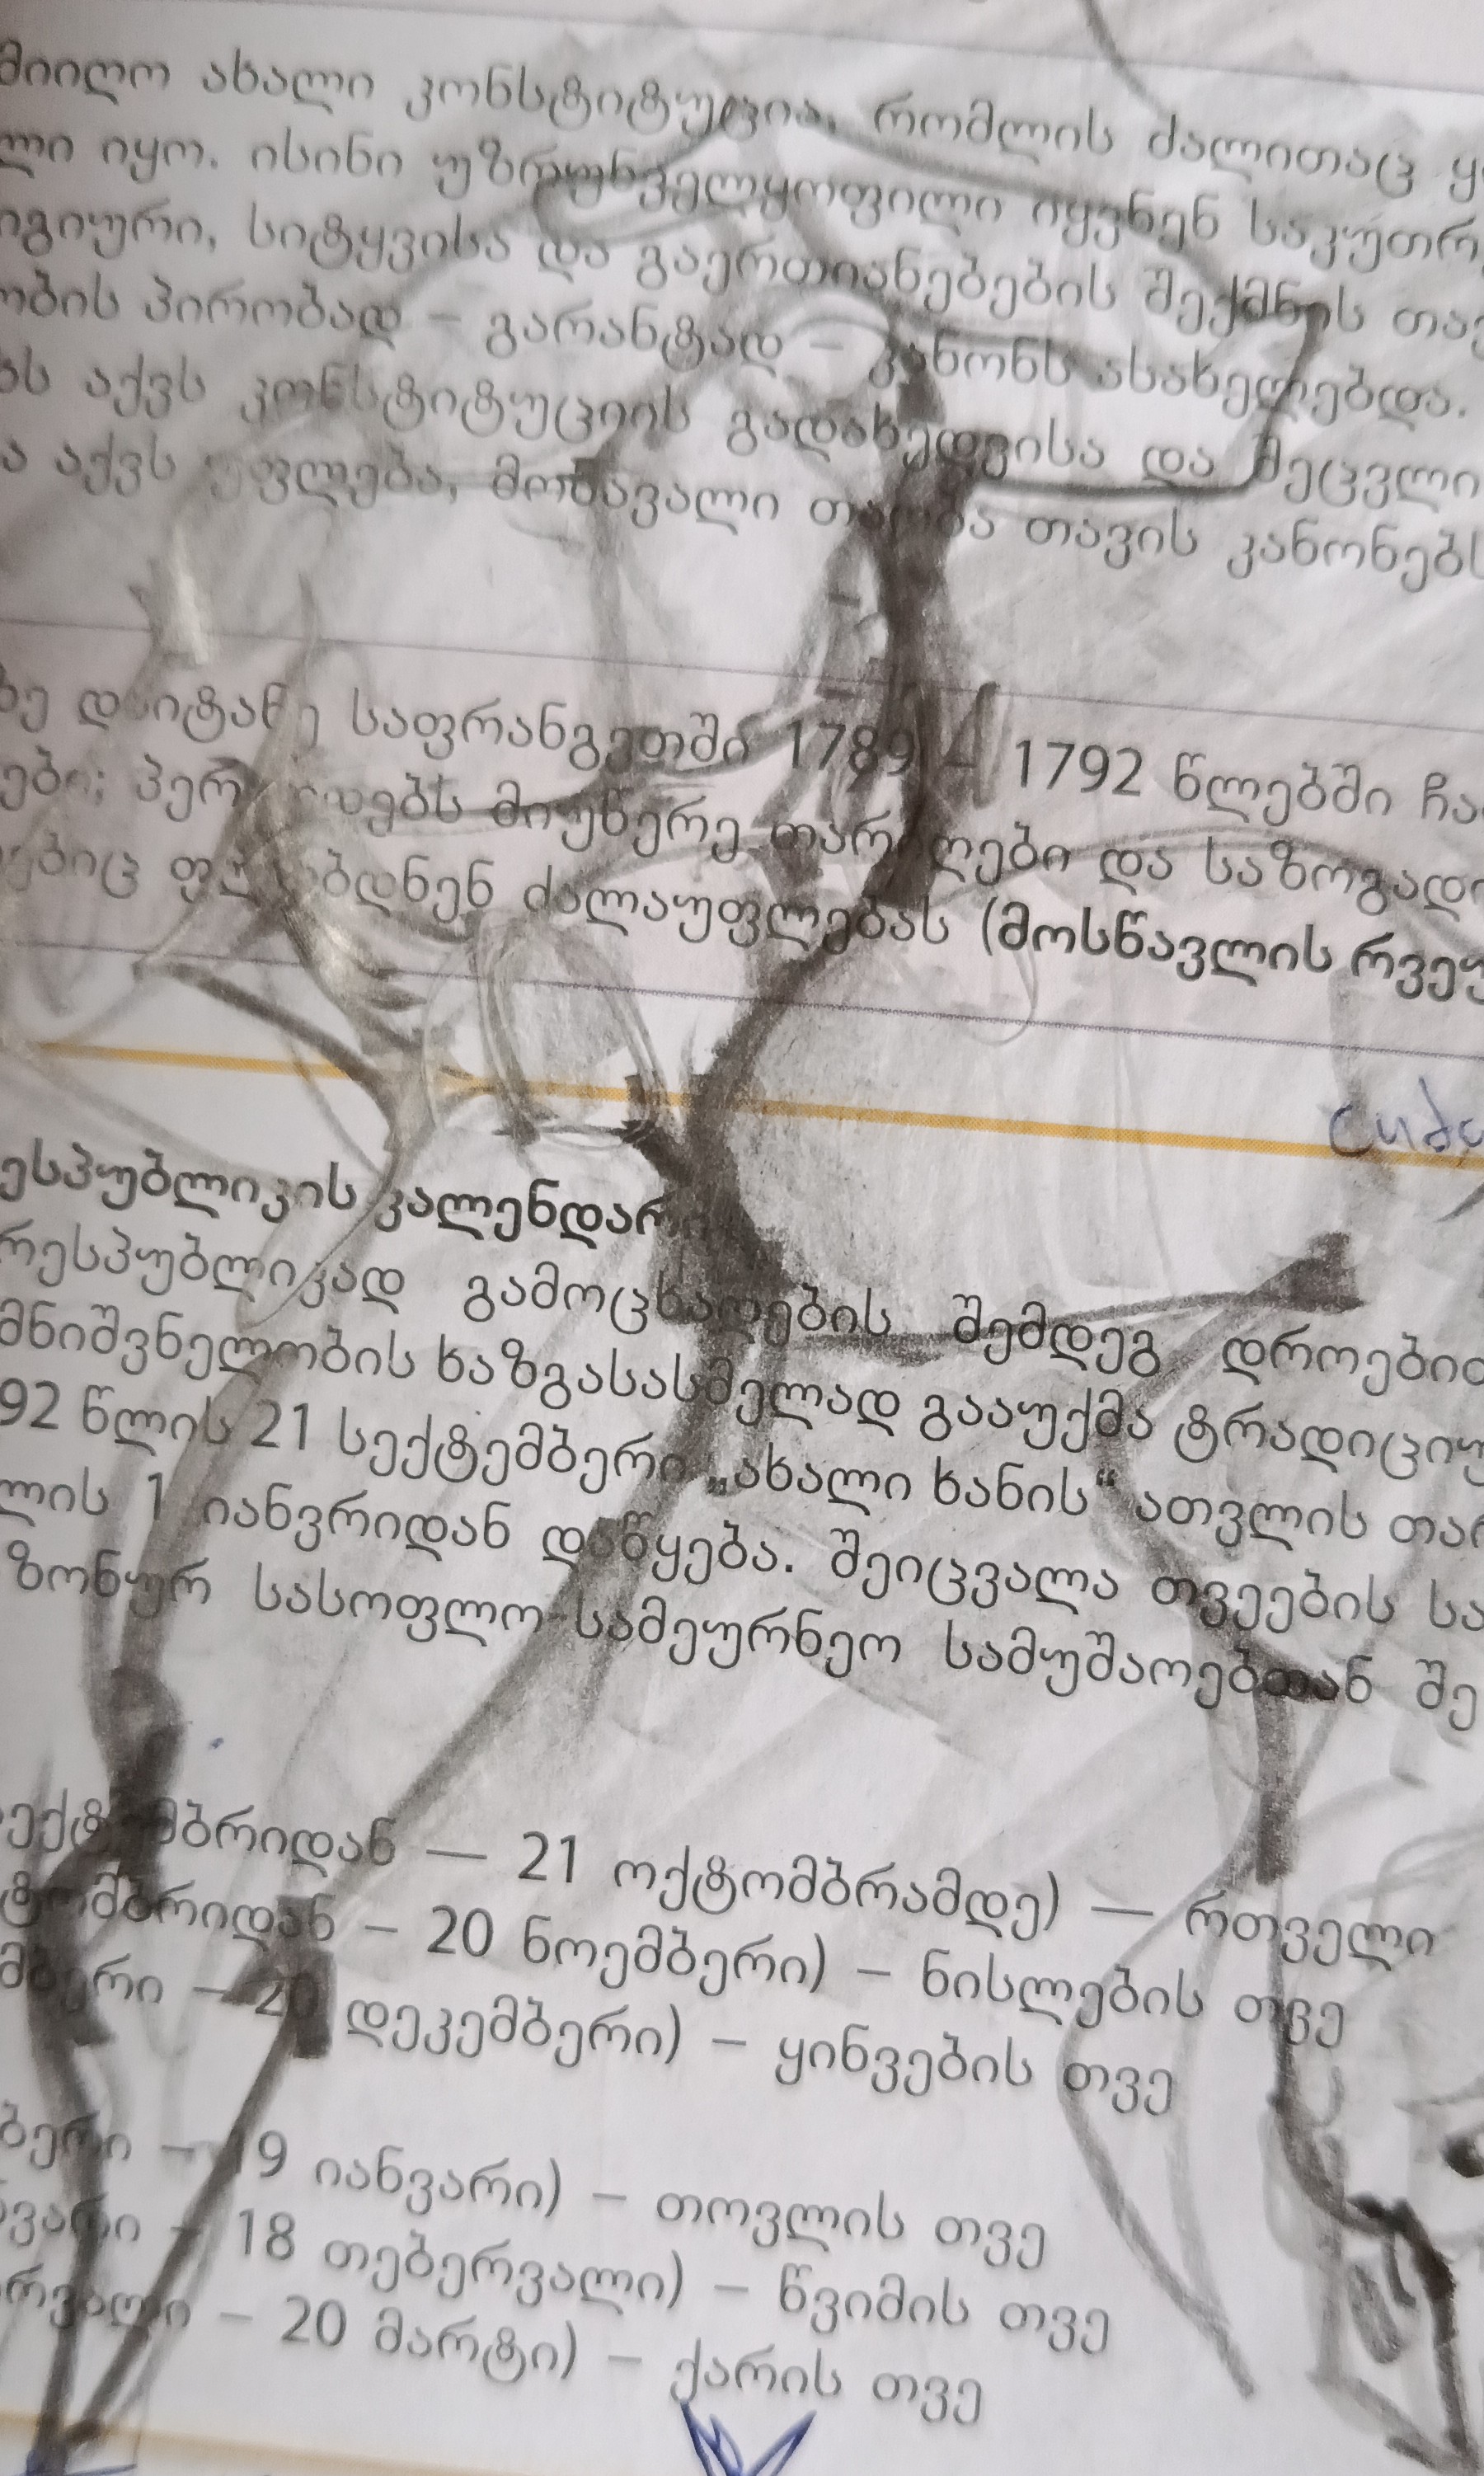 მიიღო ახალი კონსტიტუცია, რომლის ძალითაც
ლი იყო. ისინი უზრუნველყოფილი იყვნენ საკუთრ
იგიური, სიტყვისა და გაერთიანებების შექმნის თავ
ობის პირობად – გარანტად – კანონს ასახელებდა.
ას აქვს კონსტიტუციის გადახედვისა და შეცვლი
ა აქვს უფლება, მომავალი თაობა თავის კანონებს
ზე დაიტანე საფრანგეთში 1789 – 1792 წლებში ჩა
ები; პერიოდებს მიუწერე თარიღები და საზოგადო
ებიც ფლობდნენ ძალაუფლებას (მოსწავლის რვეუ
ესპუბლიკის კალენდარი
რესპუბლიკად გამოცხადების შემდეგ დროებით
მნიშვნელობის ხაზგასასმელად გააუქმა ტრადიციუ
92 წლის 21 სექტემბერი „ახალი ხანის“ ათვლის თარ
ლის 1 იანვრიდან დაწყება. შეიცვალა თვეების სა
ზონურ სასოფლო-სამეურნეო სამუშაოებთან შე
ექტემბრიდან — 21 ოქტომბრამდე) — რთველი
ტომბრიდან – 20 ნოემბერი) – ნისლების თვე
მბერი – 20 დეკემბერი) – ყინვების თვე
ბერი – 19 იანვარი) – თოვლის თვე
ვარი – 18 თებერვალი) – წვიმის თვე
რვალი – 20 მარტი) – ქარის თვე